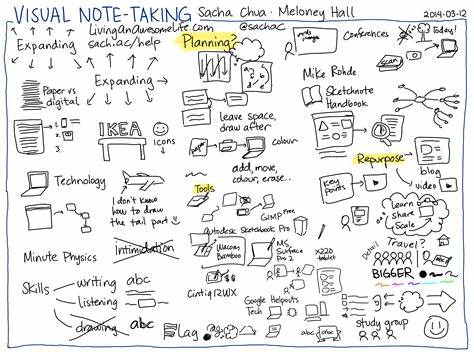 VISUAL NOTE-TAKING Sacha Chua · Meloney Hall 2014-03-12
livinganawesomelife.com @sachac
Expanding sach.ac/help
Planning?
Conferences
Today!
scan
Expanding
Paper vs digital
a/b
d/e
Mike Rohde
Sketchnote
Handbook
IKEA
Icons
leave space,
draw after
colour
add, move,
colour, erase..
Repurpose
blog
video
key
points
Technology
I don't know
how to draw
the tail part
Tools
GIMP Free
Autodesk Sketchbook Pro
learn
share
Scale
Minute Physics
Intimidation
Wacom
Bamboo
MS
Surface
Pro 2
X220
tablet
Detail
Travel?
BIGGER
Skills
writing abc
Listening
drawing abc
Cintiq 12WX
Google Helpouts
Tech
Lag
abc
study group